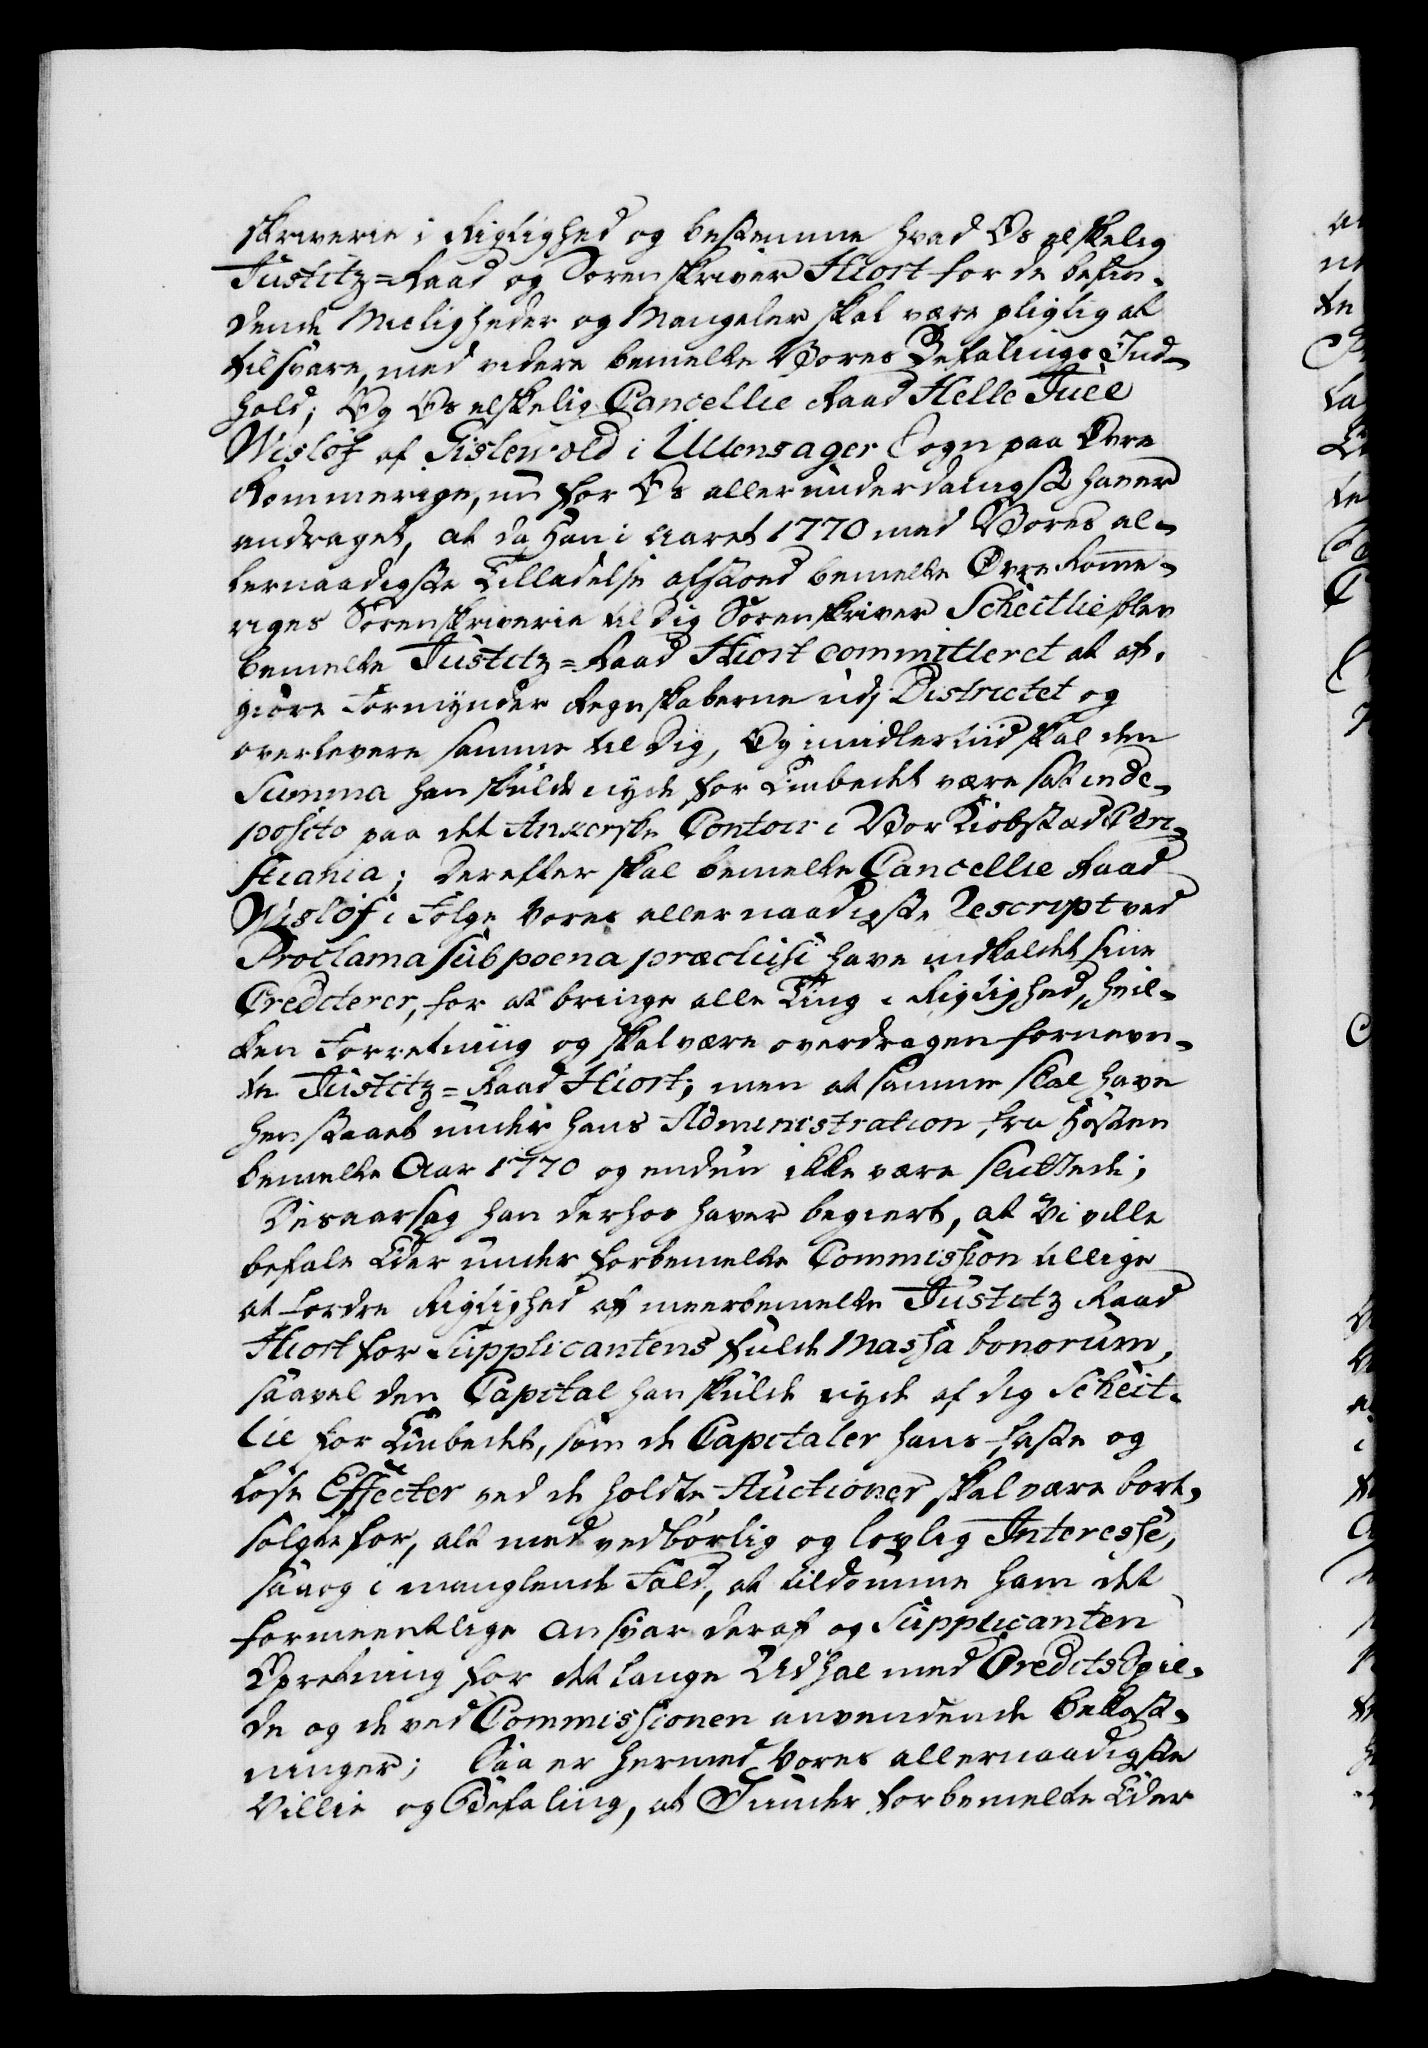 skriverie i Rigtighed og bestemme hvad Os elskelig
Justitz=Raad og Sorenskriver Hiort for de befin-
dende Mueligheder og Mangeler skal være pligtig at
tilsvare, med videre bemelte Vores Befalings Ind-
hold; Og Os elskelig Cancellie Raad Helle Juel
Wisløf af Gislewold i Ullensager Sogn paa Øvre
Rommerige, nu for Os allerunderdanigst haver
andraget, at da han i Aaret 1770 med Vores al-
lernaadigste Tilladelse afstoed bemelte Øvre Romme-
riges Sorenskriverie til dig Sorenskriver Scheitlie blev
bemelte Justitz=Raad Hiort committeret at af-
giøre Formynder Regnskaberne udj Districtet og
overlevere samme til dig, Og imidlertiid skal den
Summa han skulde nyde for Embedet være sat in de-
posito paa det Ankerske Contoir i Vor Kiøbstad Chri-
stiania; derefter skal bemelte Cancellie Raad
Wisløf i Følge Vores allernaadigste Rescript ved
Proclama sub poena præclusi have indkaldet sine
Creditorer, for at bringe alle Ting i Rigtighed, hvil-
ken Forretning og skal være overdragen fornevn-
te Justitz=Raad Hiort; men at samme skal have
henstaaet under hans Administration fra Høsten
bemelte Aar 1770 og endnu ikke være sluttede;
Desaarsag han derhos haver begiert, at Vi ville
befale Eder under forbemelte Commission tillige
at fordre Rigtighed af meerbemelte Justitz Raad
Hiort for Supplicantens fulde Massa bonorum,
saavel den Capital han skulde nyde af dig Scheit-
lie for Embedet, som de Capitaler hans faste og
løse Effecter ved de holdte Auctioner skal være bort-
solgte for, alt med vedbørlig og lovlig Interesse,
saa og i manglende Fald, at tildømme ham det
formeentlige Ansvar deraf og Supplicanten
Opretning for det lange Udhal med Credits Spil-
de og de ved Commissionen anvendende Bekost-
ninger; Saa er hermed Vores allernaadigste
Villie og Befaling, at I under forbemelte Eder